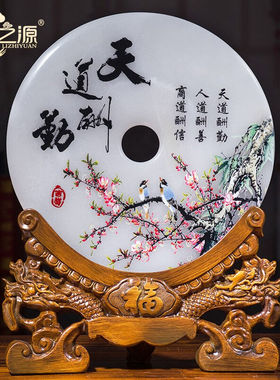 之源
LIZHIYUAN
天道酬勤
天道酬勤
人道酬善
商道酬信
福